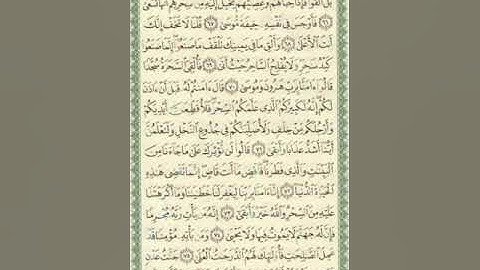 بَلْ أَلْقُوا۟ فَإِذَا حِبَالُهُمْ وَعِصِيُّهُمْ يُخَيَّلُ إِلَيْهِ مِن سِحْرِهِمْ أَنَّهَا تَسْعَىٰ
﴿٦٦﴾ فَأَوْجَسَ فِى نَفْسِهِۦ خِيفَةً مُّوسَىٰ ﴿٦٧﴾ قُلْنَا لَا تَخَفْ إِنَّكَ
أَنتَ ٱلْأَعْلَىٰ ﴿٦٨﴾ وَأَلْقِ مَا فِى يَمِينِكَ تَلْقَفْ مَا صَنَعُوٓا۟ إِنَّمَا صَنَعُوا۟
كَيْدُ سَٰحِرٍ وَلَا يُفْلِحُ ٱلسَّاحِرُ حَيْثُ أَتَىٰ ﴿٦٩﴾ فَأُلْقِىَ ٱلسَّحَرَةُ سُجَّدًا
قَالُوٓا۟ ءَامَنَّا بِرَبِّ هَٰرُونَ وَمُوسَىٰ ﴿٧٠﴾ قَالَ ءَامَنتُمْ لَهُۥ قَبْلَ أَنْ ءَاذَنَ
لَكُمْ إِنَّهُۥ لَكَبِيرُكُمُ ٱلَّذِى عَلَّمَكُمُ ٱلسِّحْرَ فَلَأُقَطِّعَنَّ أَيْدِيَكُمْ
وَأَرْجُلَكُم مِّنْ خِلَٰفٍ وَلَأُصَلِّبَنَّكُمْ فِى جُذُوعِ ٱلنَّخْلِ وَلَتَعْلَمُنَّ
أَيُّنَآ أَشَدُّ عَذَابًا وَأَبْقَىٰ ﴿٧١﴾ قَالُوا۟ لَن نُّؤْثِرَكَ عَلَىٰ مَا جَآءَنَا مِنَ
ٱلْبَيِّنَٰتِ وَٱلَّذِى فَطَرَنَا فَٱقْضِ مَآ أَنتَ قَاضٍ إِنَّمَا تَقْضِى هَٰذِهِ
ٱلْحَيَوٰةَ ٱلدُّنْيَآ ﴿٧٢﴾ إِنَّآ ءَامَنَّا بِرَبِّنَا لِيَغْفِرَ لَنَا خَطَٰيَٰنَا وَمَآ أَكْرَهْتَنَا
عَلَيْهِ مِنَ ٱلسِّحْرِ وَٱللَّهُ خَيْرٌ وَأَبْقَىٰٓ ﴿٧٣﴾ إِنَّهُۥ مَن يَأْتِ رَبَّهُۥ مُجْرِمًا
فَإِنَّ لَهُۥ جَهَنَّمَ لَا يَمُوتُ فِيهَا وَلَا يَحْيَىٰ ﴿٧٤﴾ وَمَن يَأْتِهِۦ مُؤْمِنًا قَدْ
عَمِلَ ٱلصَّٰلِحَٰتِ فَأُو۟لَٰٓئِكَ لَهُمُ ٱلدَّرَجَٰتُ ٱلْعُلَىٰ ﴿٧٥﴾ جَنَّٰتُ عَدْنٍ